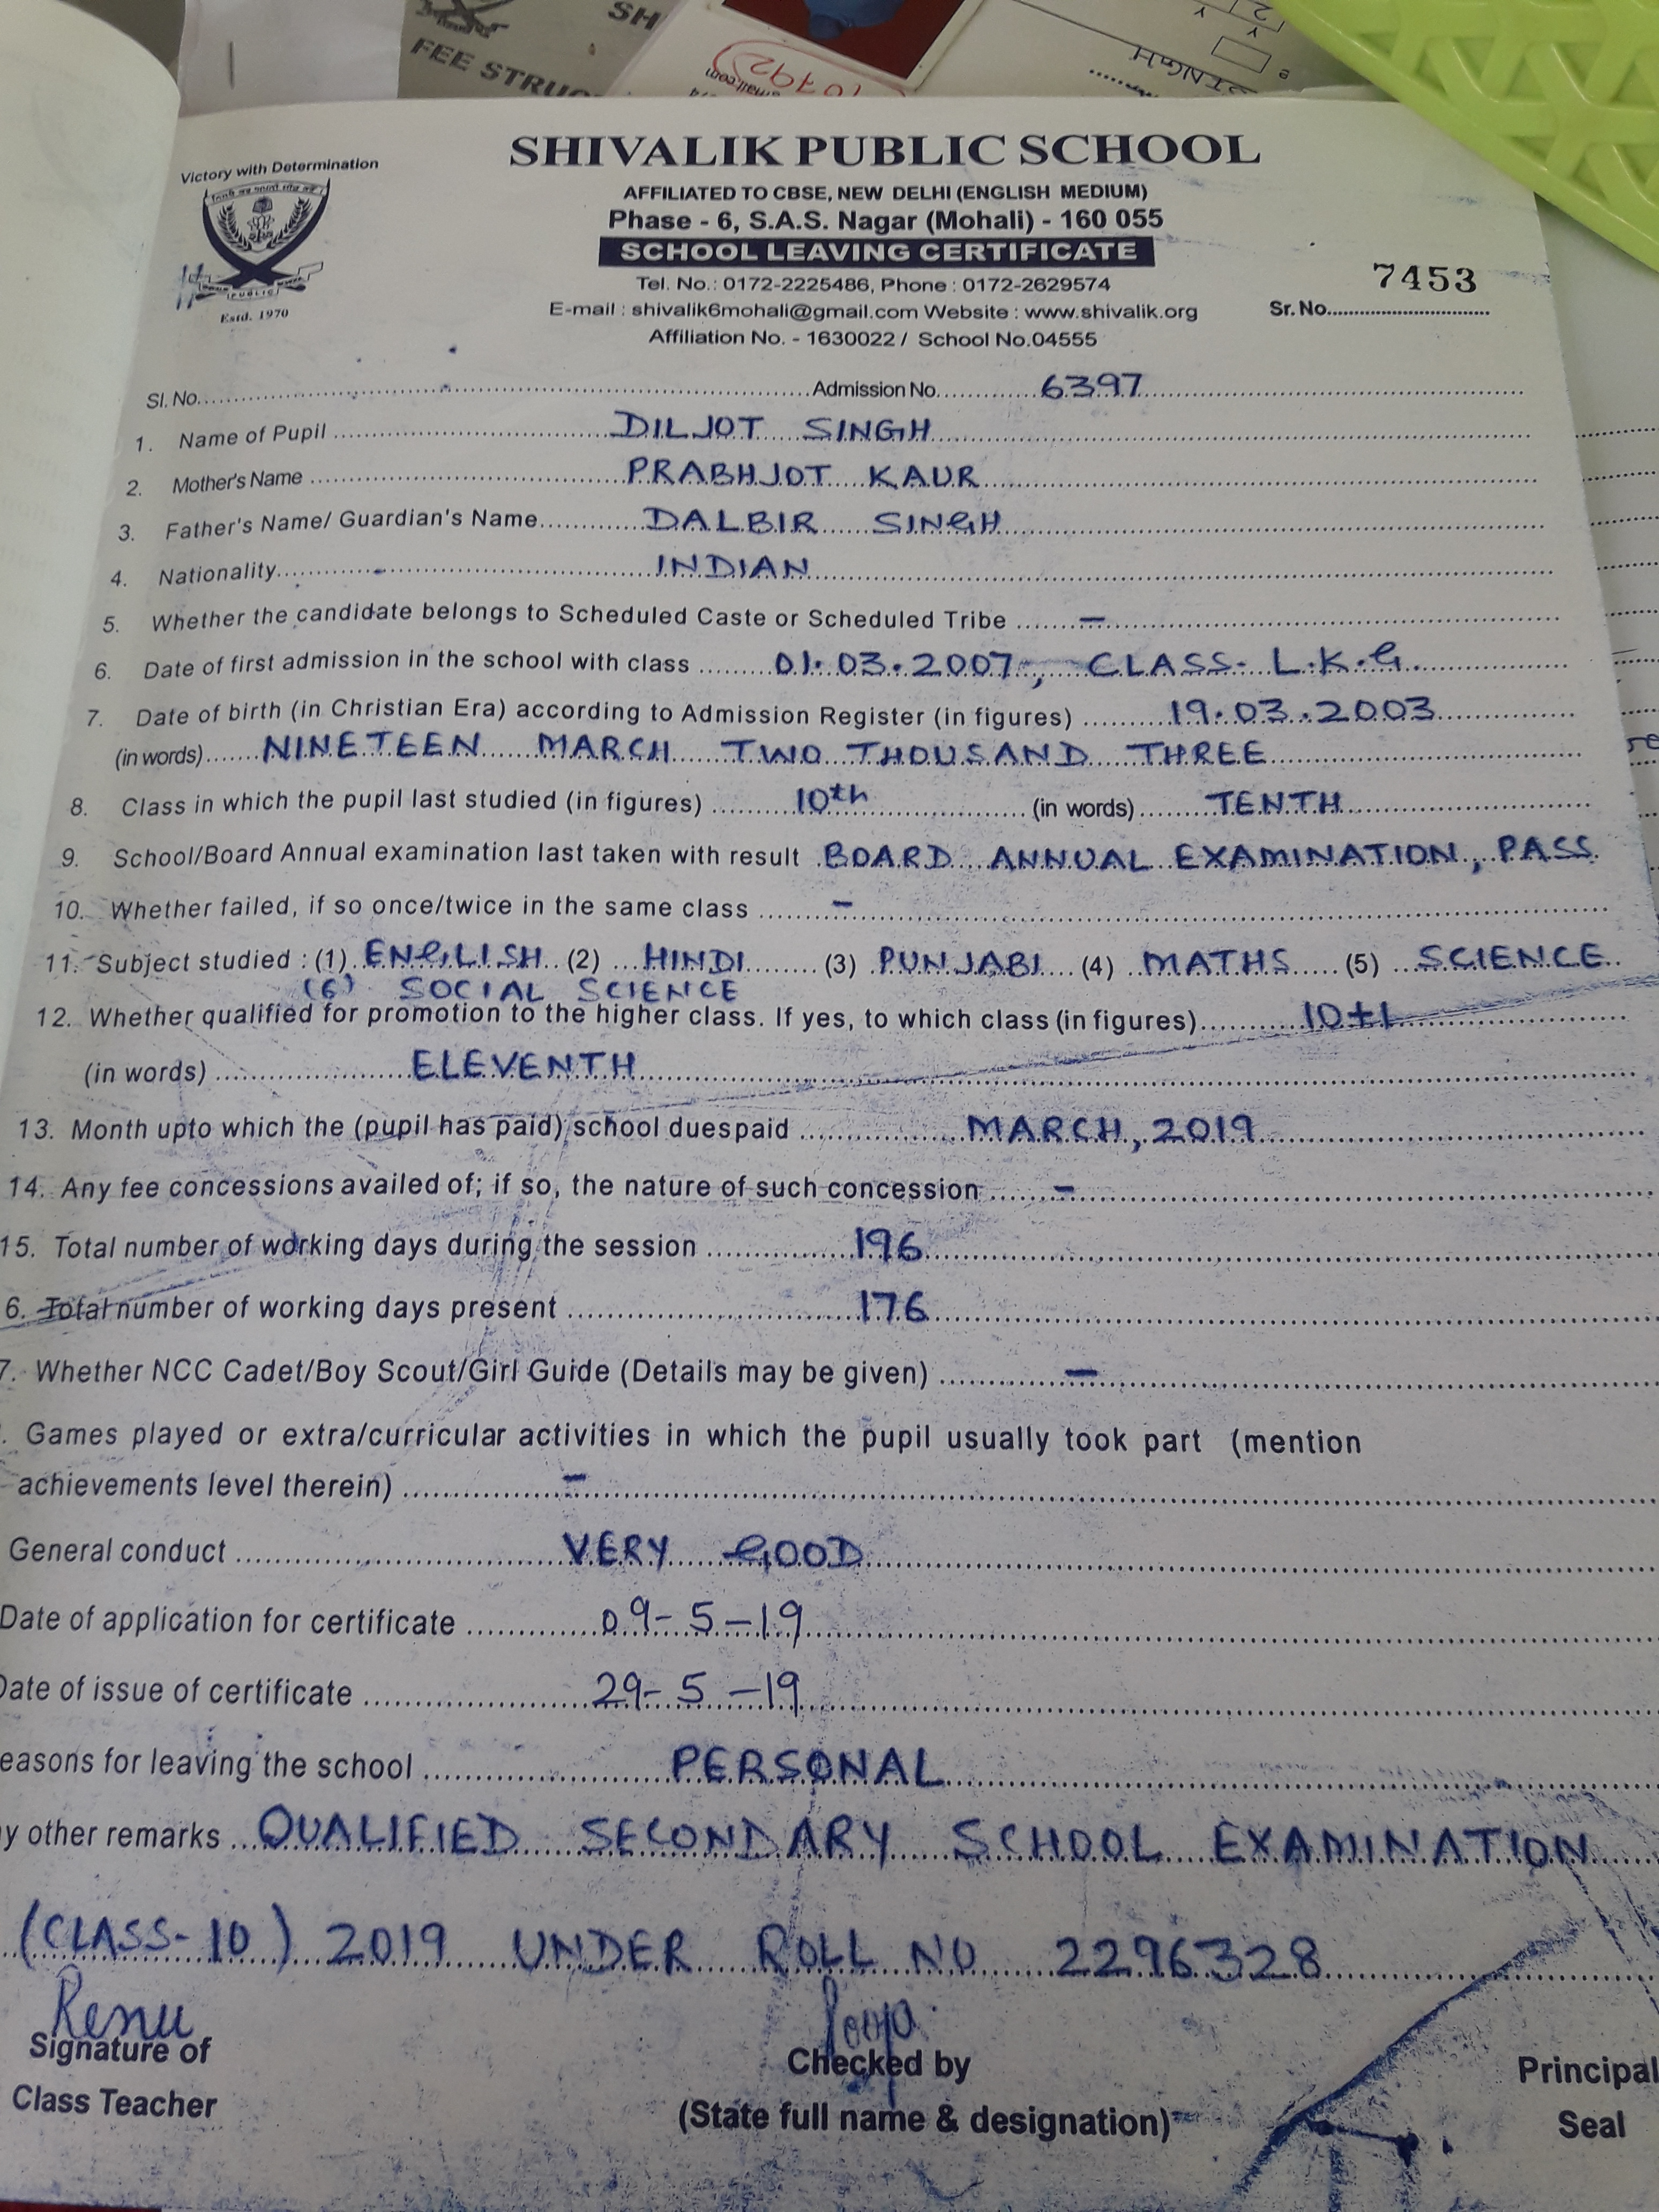 SH
FEE STRUC
mail.com
10792
INGH
Victory with Determination
PUBLIC
Estd. 1970
SHIVALIK PUBLIC SCHOOL
AFFILIATED TO CBSE, NEW DELHI (ENGLISH MEDIUM)
Phase - 6, S.A.S. Nagar (Mohali) - 160 055
SCHOOL LEAVING CERTIFICATE
Tel. No.: 0172-2225486, Phone : 0172-2629574
E-mail : shivalik6mohali@gmail.com Website : www.shivalik.org
Affiliation No. - 1630022 / School No.04555
7453
Sr. No.
Sl. No. Admission No. 6397
1. Name of Pupil DILJOT SINGH
2. Mother's Name PRABHJOT KAUR
3. Father's Name/ Guardian's Name DALBIR SINGH
4. Nationality INDIAN
5. Whether the candidate belongs to Scheduled Caste or Scheduled Tribe -
6. Date of first admission in the school with class 01.03.2007, CLASS- L.K.G.
7. Date of birth (in Christian Era) according to Admission Register (in figures) 19.03.2003
(in words) NINETEEN MARCH TWO THOUSAND THREE
8. Class in which the pupil last studied (in figures) 10th (in words) TENTH
9. School/Board Annual examination last taken with result BOARD ANNUAL EXAMINATION, PASS
10. Whether failed, if so once/twice in the same class -
11. Subject studied : (1) ENGLISH (2) HINDI (3) PUNJABI (4) MATHS (5) SCIENCE
(6) SOCIAL SCIENCE
12. Whether qualified for promotion to the higher class. If yes, to which class (in figures) 10+1
(in words) ELEVENTH
13. Month upto which the (pupil has paid) school duespaid MARCH, 2019
14. Any fee concessions availed of; if so, the nature of such concession -
15. Total number of working days during the session 196
6. Total number of working days present 176
7. Whether NCC Cadet/Boy Scout/Girl Guide (Details may be given) -
. Games played or extra/curricular activities in which the pupil usually took part (mention
achievements level therein) -
General conduct VERY GOOD
Date of application for certificate 09-5-19
Date of issue of certificate 29-5-19
easons for leaving the school PERSONAL
y other remarks QUALIFIED SECONDARY SCHOOL EXAMINATION
(CLASS-10) 2019 UNDER ROLL NO 2296328
Renu Pooja
Signature of Checked by Principal
Class Teacher (State full name & designation) Seal